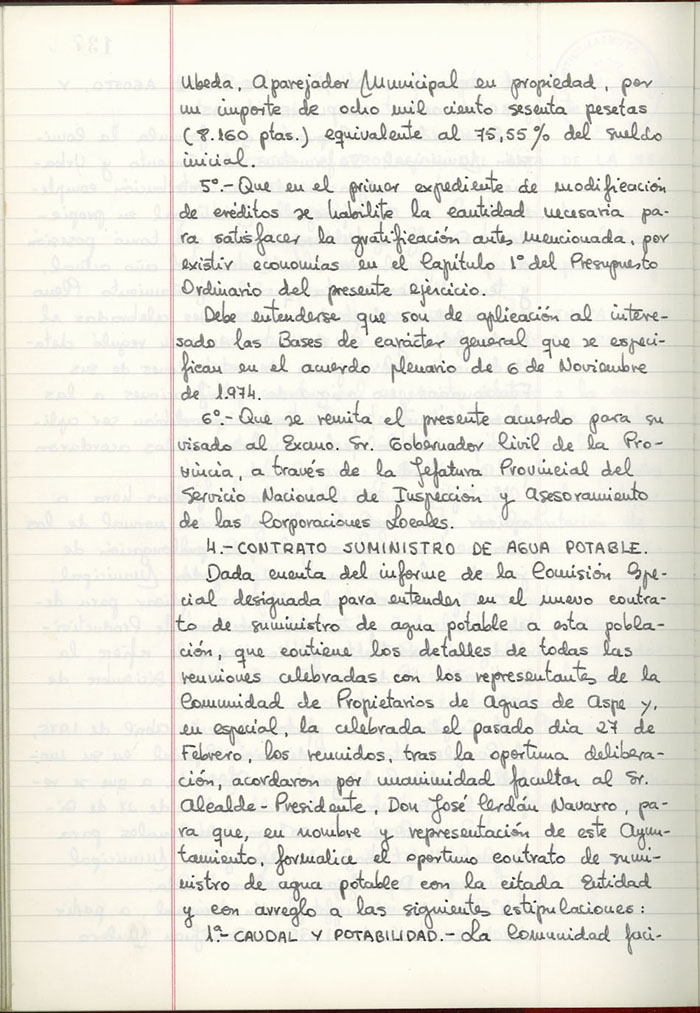 Ubeda, Aparejador Municipal en propiedad, por
un importe de ocho mil ciento sesenta pesetas
(8.160 ptas.) equivalente al 75,55% del sueldo
inicial.
5º.- Que en el primer expediente de modificación
de créditos se habilite la cantidad necesaria pa-
ra satisfacer la gratificación antes mencionada, por
existir economías en el Capítulo 1º del Presupuesto
Ordinario del presente ejercicio.
Debe entenderse que son de aplicación al intere-
sado las Bases de carácter general que se especi-
fican en el acuerdo plenario de 6 de Noviembre
de 1.974.
6º.- Que se remita el presente acuerdo para su
visado al Excmo. Sr. Gobernador Civil de la Pro-
vincia, a través de la Jefatura Provincial del
Servicio Nacional de Inspección y Asesoramiento
de las Corporaciones Locales.
4.- CONTRATO SUMINISTRO DE AGUA POTABLE.
Dada cuenta del informe de la Comisión Espe-
cial designada para entender en el nuevo contra-
to de suministro de agua potable a esta pobla-
ción, que contiene los detalles de todas las
reuniones celebradas con los representantes de la
Comunidad de Propietarios de Aguas de Aspe y,
en especial, la celebrada el pasado día 27 de
Febrero, los reunidos, tras la oportuna delibera-
ción, acordaron por unanimidad facultar al Sr.
Alcalde-Presidente, Don José Cerdán Navarro, pa-
ra que, en nombre y representación de este Ayun-
tamiento, formalice el oportuno contrato de sumi-
nistro de agua potable con la citada Entidad
y con arreglo a las siguientes estipulaciones:
1ª.- CAUDAL Y POTABILIDAD.- La Comunidad faci-